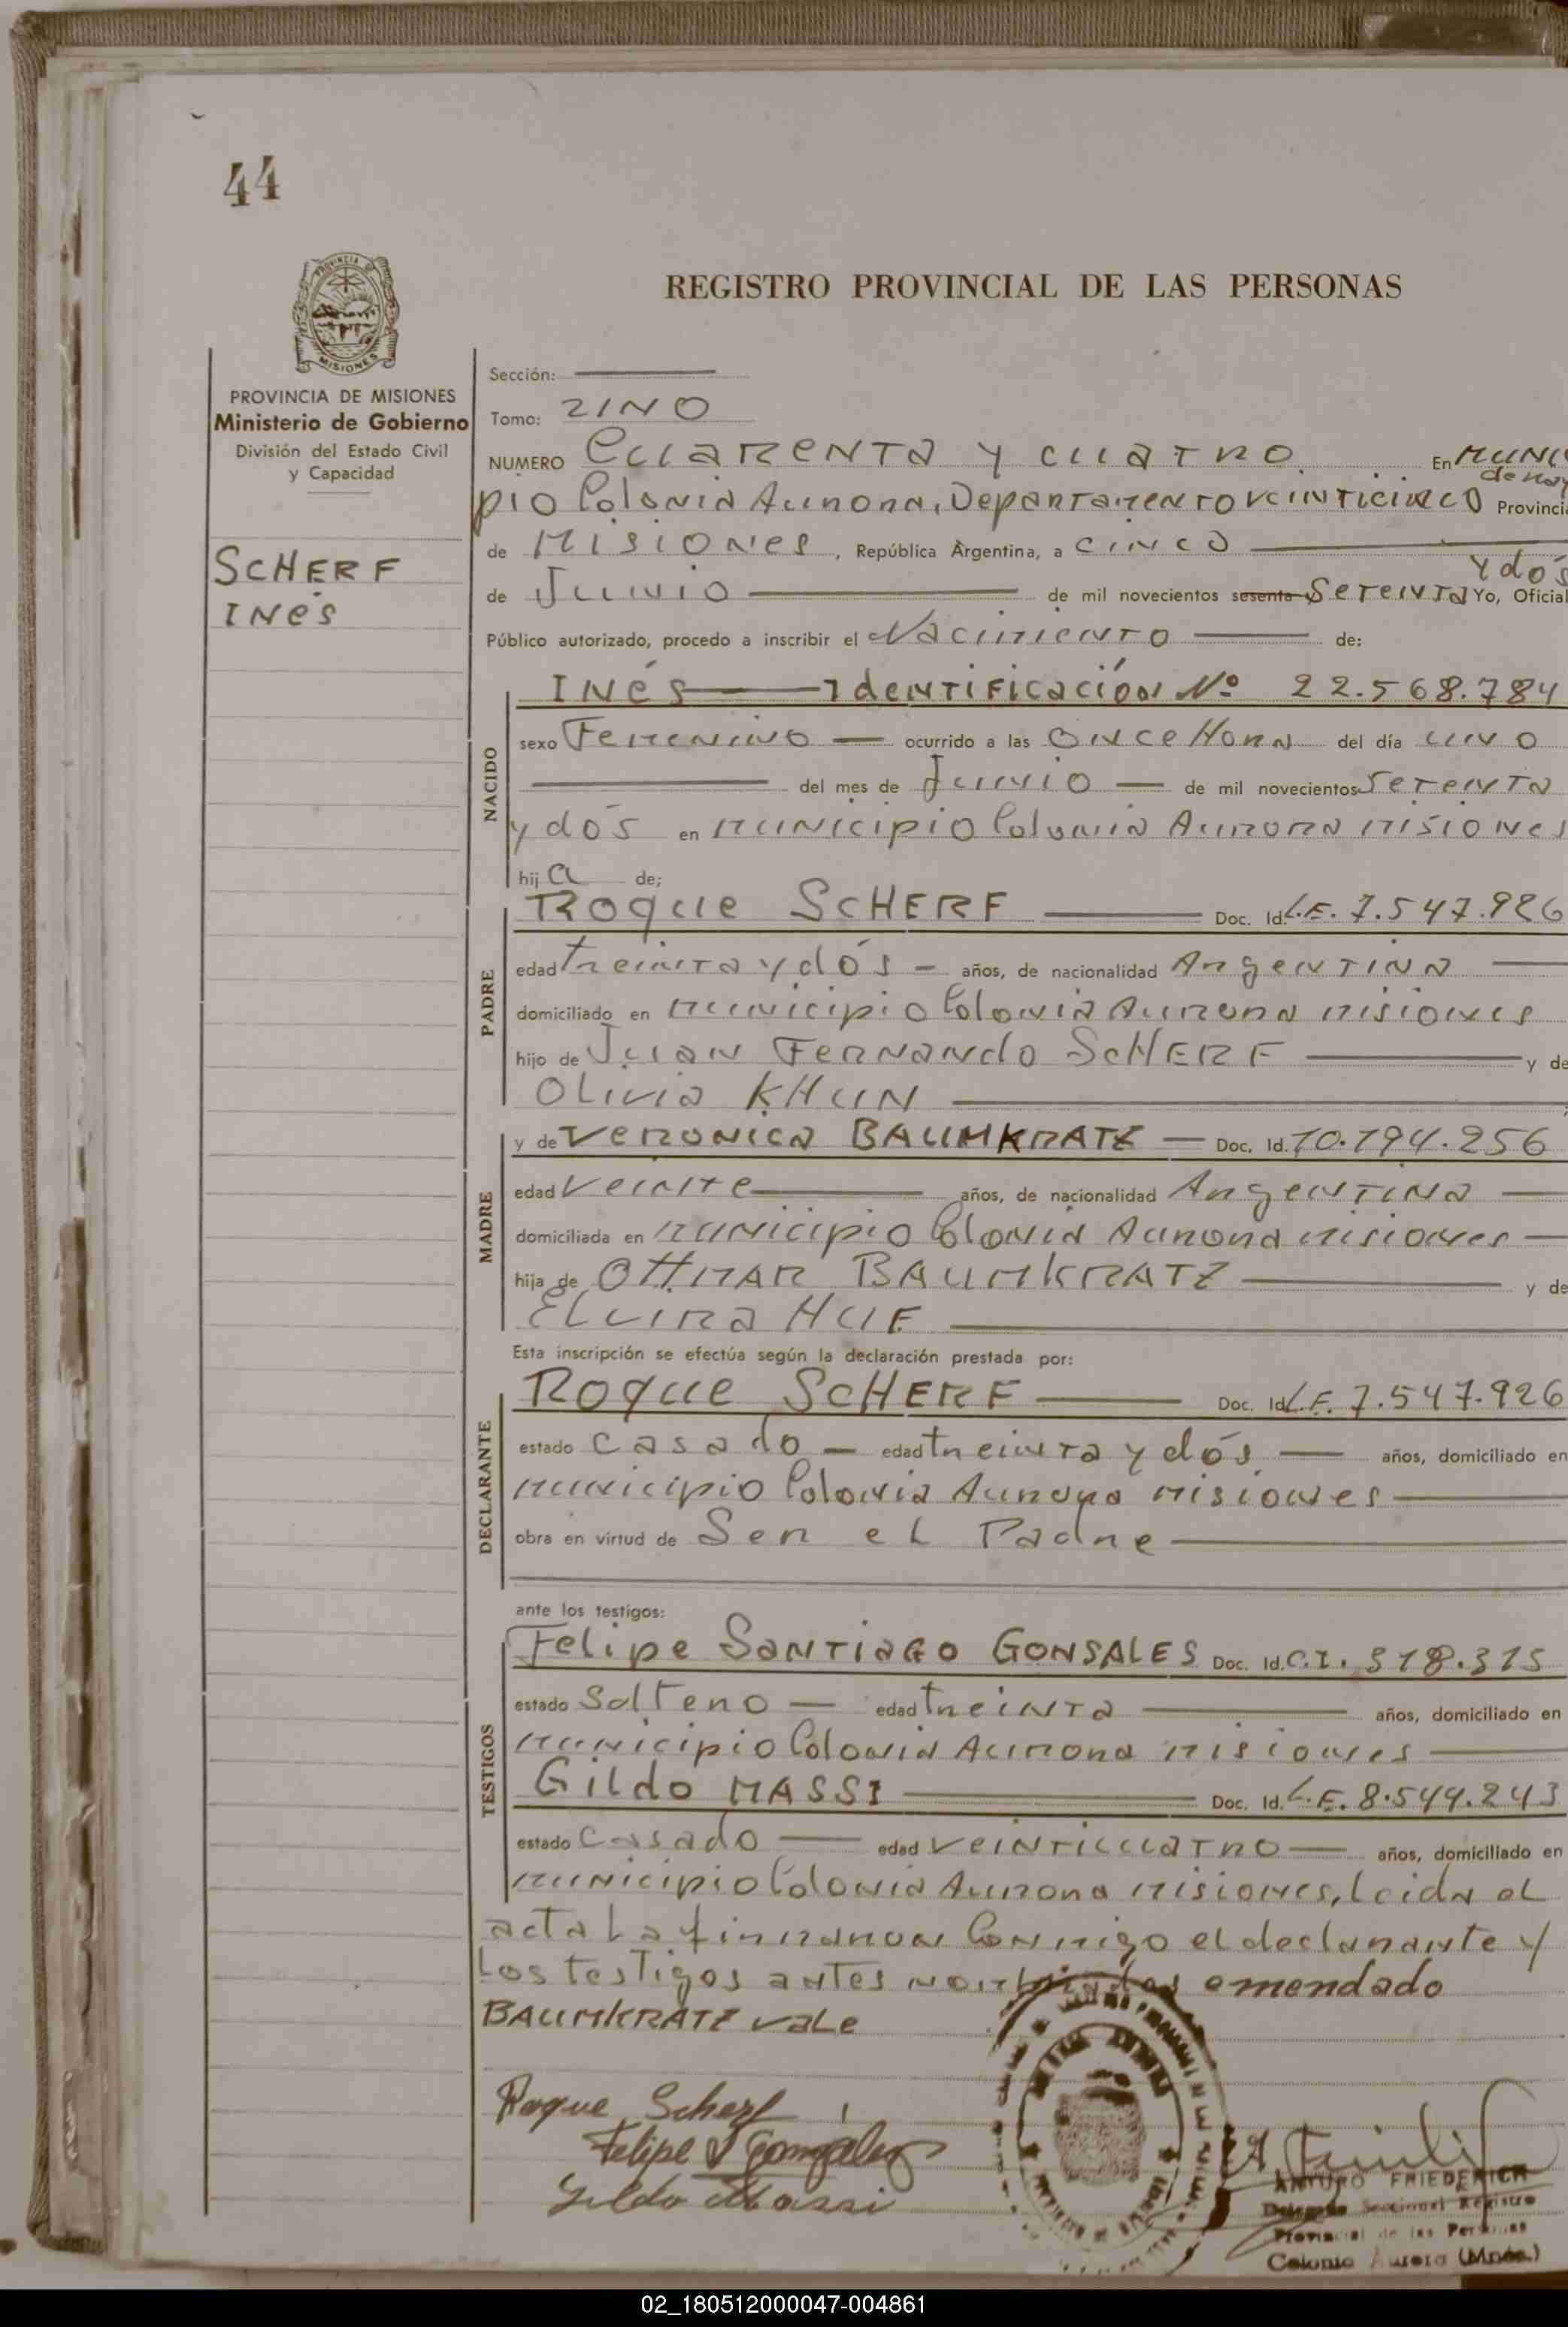 44
PROVINCIA DE
MISIONES
REGISTRO PROVINCIAL DE LAS PERSONAS
PROVINCIA DE MISIONES
Ministerio de Gobierno
División del Estado Civil
y Capacidad
SCHERF
INés
Sección:
Tomo: 2INO
NUMERO CUARENTA Y CUATRO. En MUNI
pio Colonia Aurora, Departamento veinticinco de May Provinci
de Misiones, República Argentina, a cinco
de Junio de mil novecientos sesenta Setenta y dós Yo, Oficial
Público autorizado, procedo a inscribir el Nacimiento de:
NACIDO
INés Identificación Nº 22.568.784
sexo Femenino ocurrido a las ONce Hora del día uno
del mes de Junio de mil novecientos setenta
y dós en municipio Colonia Aurora misiones
hija de;
PADRE
Roque SCHERF Doc. Id. L.E. 7.547.926
edad treinta y dós años, de nacionalidad Argentina
domiciliado en municipio Colonia Aurora misiones
hijo de Juan Fernando SCHERF y de
Olivia KHUN
MADRE
y de Veronica BAUMKRATZ Doc. Id. 10.194.256
edad veinte años, de nacionalidad Argentina
domiciliada en municipio Colonia Aurora misiones
hija de OttMAR BAUMKRATZ y de
Elvira HUF
Esta inscripción se efectúa según la declaración prestada por:
DECLARANTE
Roque SCHERF Doc. Id. L.E. 7.547.926
estado casado edad treinta y dós años, domiciliado en
municipio Colonia Aurora misiones
obra en virtud de Ser el Padre
ante los testigos:
TESTIGOS
Felipe SANTIAGO GONSALES Doc. Id. C.I. 318.315
estado Solteno edad treinta años, domiciliado en
municipio Colonia Aurora misiones
Gildo MASSI Doc. Id. L.E. 8.549.243
estado casado edad veinticuatro años, domiciliado en
municipio Colonia Aurora misiones, Leida el
acta La firmaron Conmigo el declarante y
Los testigos antes nombrados emendado
BAUMKRATZ vale
Roque Scherf
Felipe S Gonzalez
Gildo Massi
ARTURO FRIEDERICH
Delegado Seccional Registro
Provincial de las Personas
Colonia Aurora (Mnes.)
02_180512000047-004861